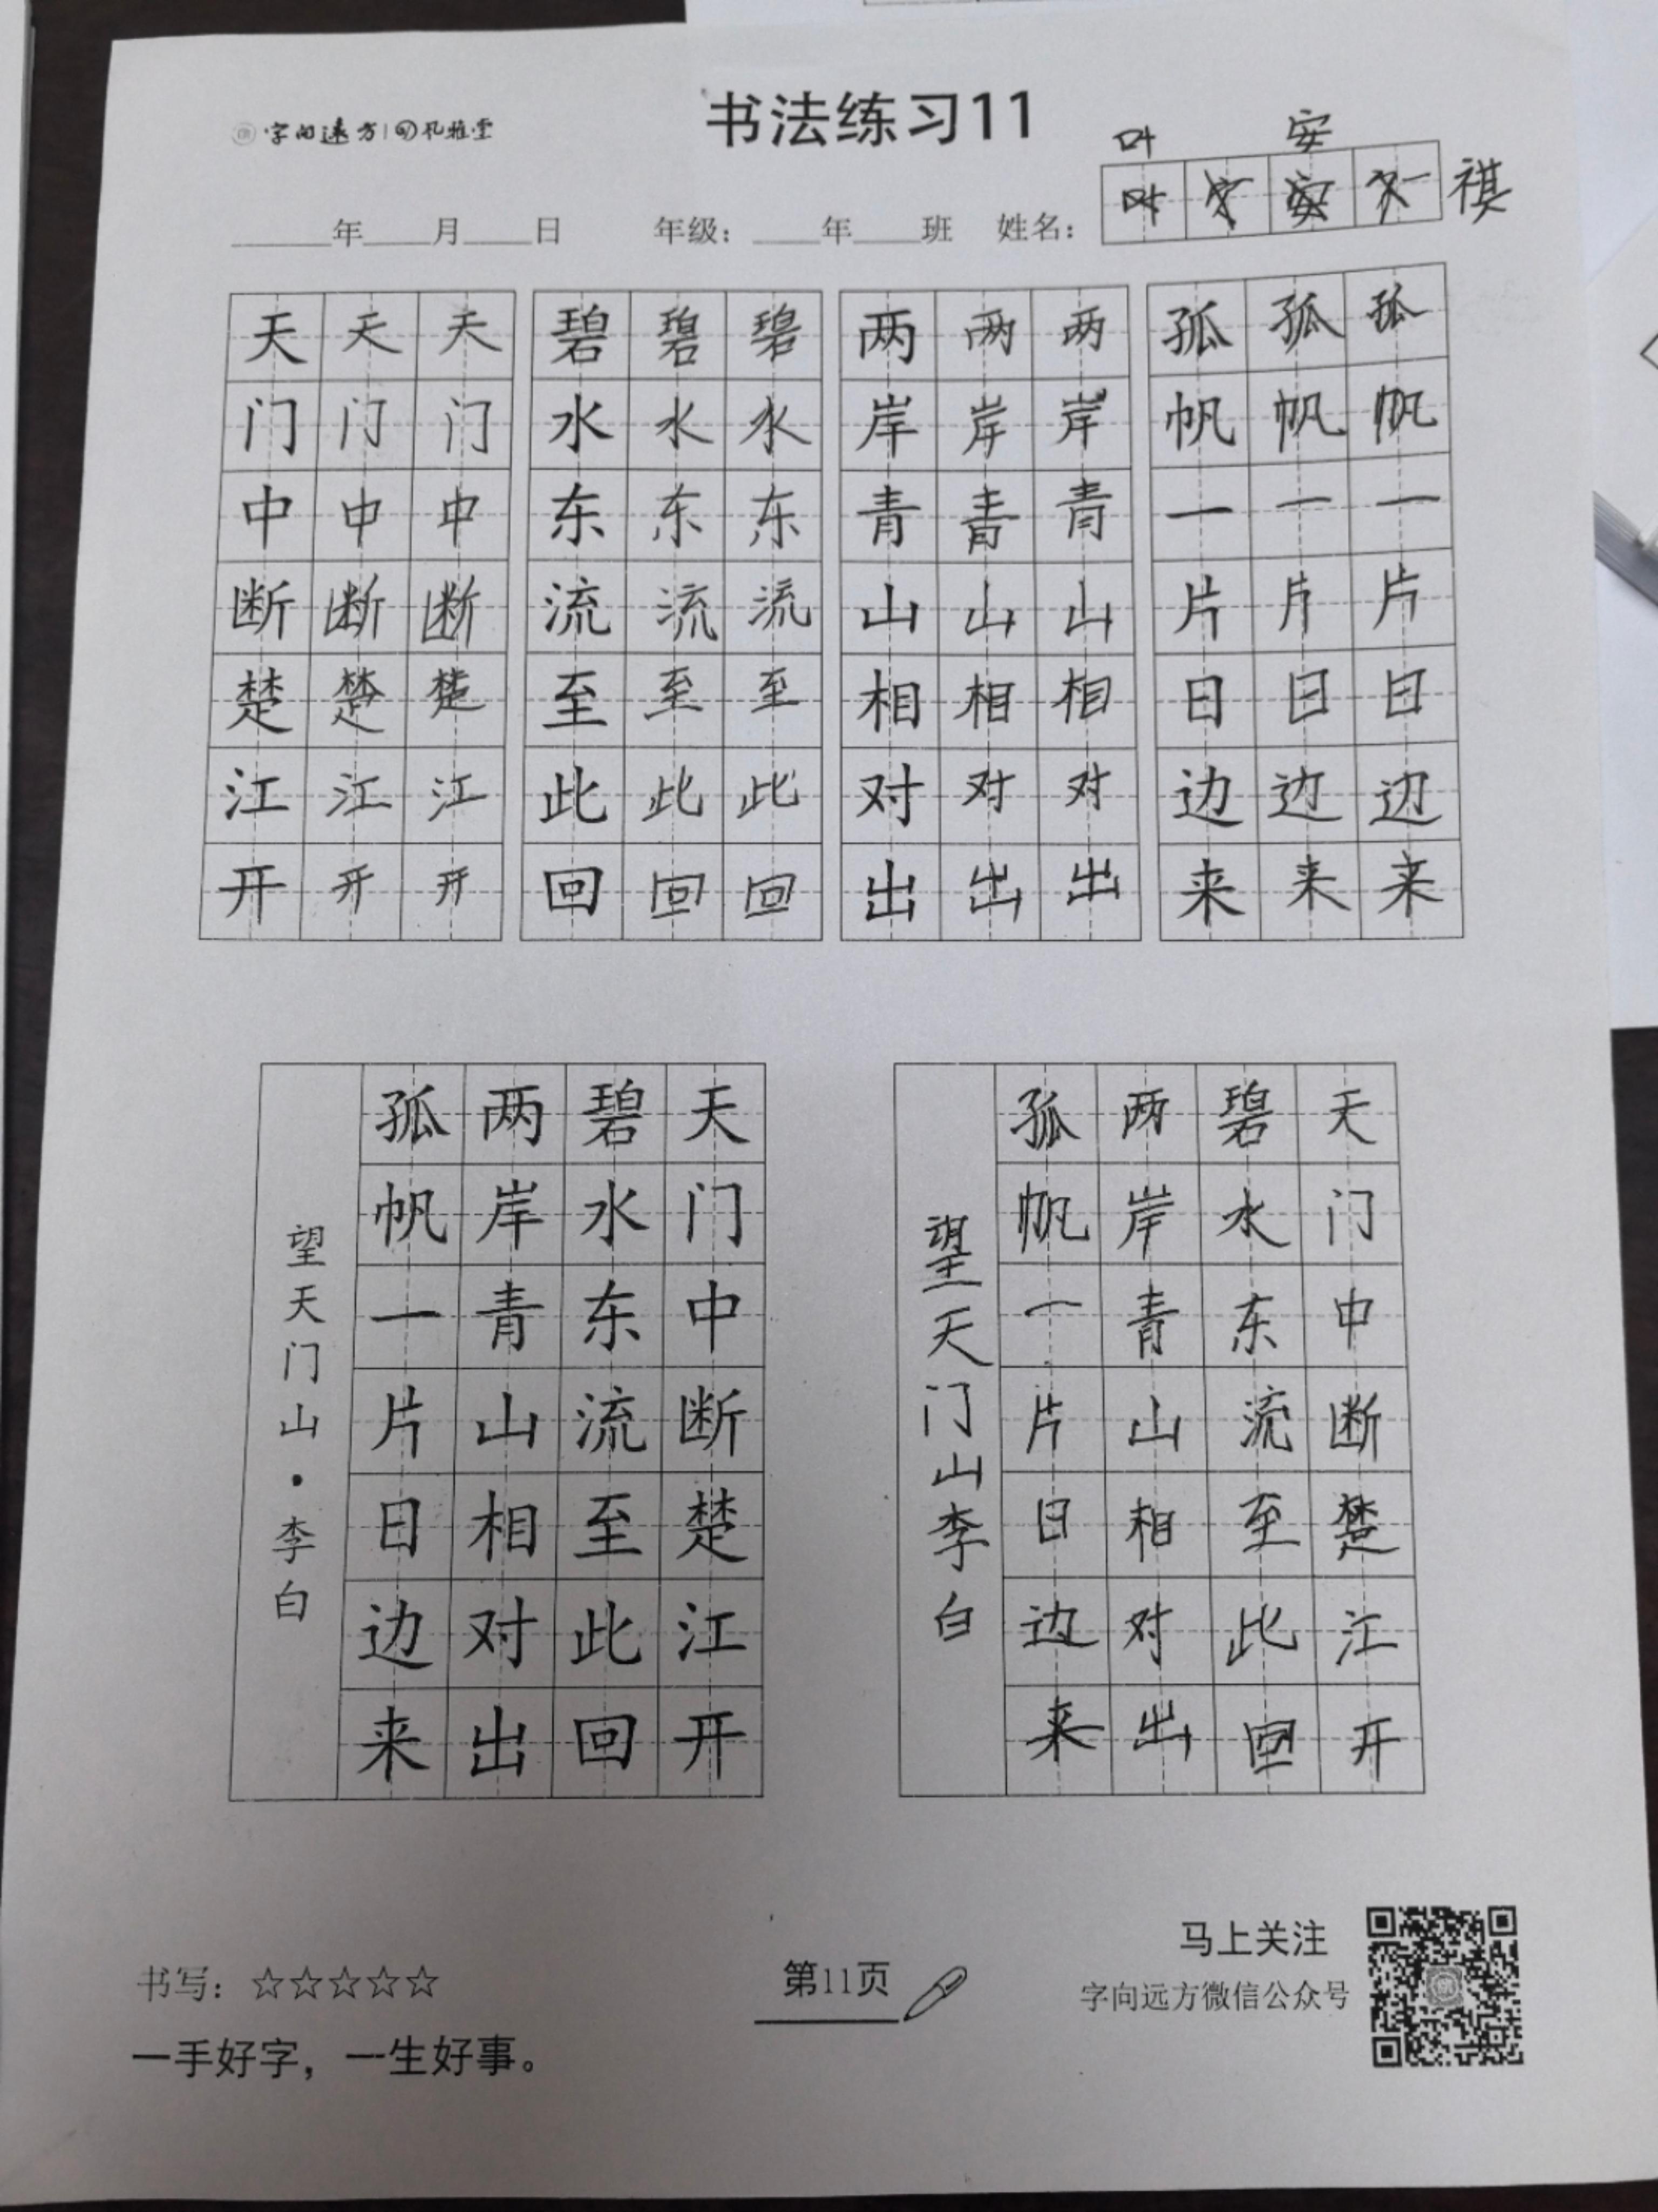 字向远方 孔雅堂
书法练习11
叶 安
叶 安 祺
年 月 日 年级： 年 班 姓名：
天天天 碧碧碧 两两两 孤孤孤
门门门 水水水 岸岸岸 帆帆帆
中中中 东东东 青青青 一一一
断断断 流流流 山山山 片片片
楚楚楚 至至至 相相相 日日日
江江江 此此此 对对对 边边边
开开开 回回回 出出出 来来来
天门中断楚江开
碧水东流至此回
两岸青山相对出
孤帆一片日边来
望天门山·李白
天门中断楚江开
碧水东流至此回
两岸青山相对出
孤帆一片日边来
望天门山李白
书写：☆☆☆☆☆
一手好字，一生好事。
第11页
马上关注
字向远方微信公众号